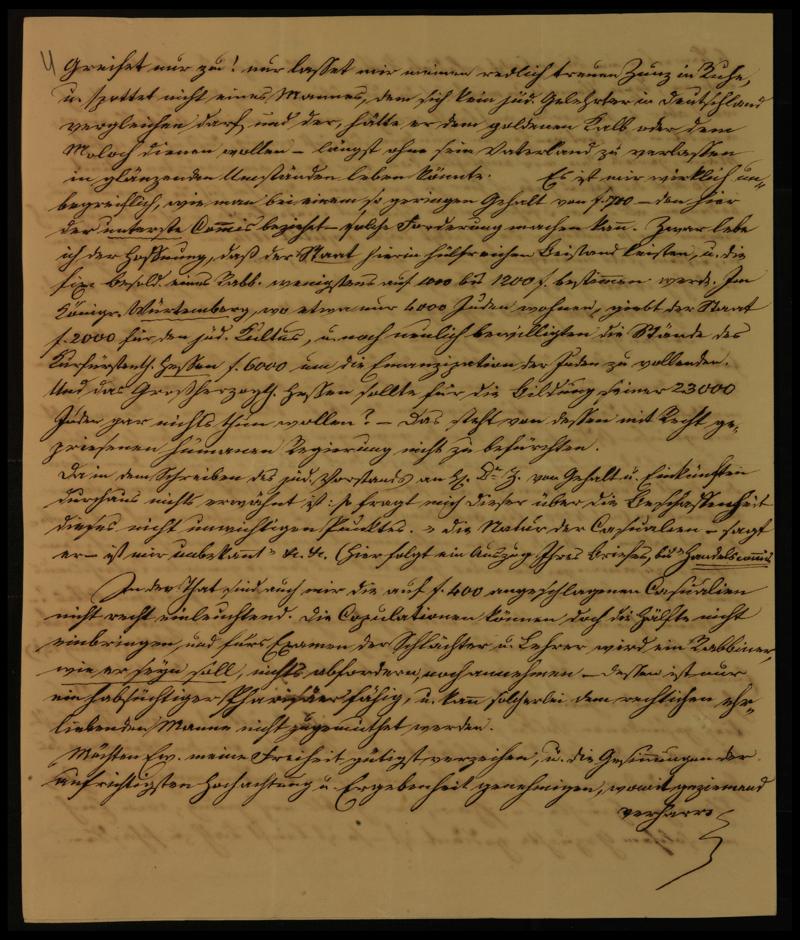 4
Greifet nur zu! nur lasset mir meinen redlich treuen Zunz in Ruhe,
u. spottet nicht eines Mannes, dem sich kein jüd. Gelehrter in Deutschland
vergleichen darf, und der, hätte er dem goldenen Kalb oder dem
Moloch dienen wollen – längst ohne sein Vaterland zu verlassen
in glänzenden Umständen leben könnte. Es ist mir wirklich un-
begreiflich, wie man bei einem so geringen Gehalt von f. 700 – den hier
der unterste Com̄is bezieht – solche Forderung machen kan̄. Zwar lebe
ich der Hoffnung, daß der Staat hierin hülfreichen Beistand leisten, u. die
fixe Besold. eines Rabb. wenigstens auf 1000 bis 1200 f. bestim̄en werde. Im
Königr. Würtemberg, wo etwa nur 6000 Juden wohnen, giebt der Staat
f. 2000 für den jüd. Kultus, u. noch neulich bewilligten die Stände des
Kurfürstenth. Hessen f. 6000 um die Emanzipation der Juden zu vollenden.
Und das Großherzogth. Hessen sollte für die Bildung seiner 23000
Juden gar nichts thun wollen? – Das steht von dessen mit Recht ge-
priesenen humanen Regierung nicht zu befürchten.
Da in dem Schreiben des jüd. Vorstands an H. Dr. Z. von Gehalt u. Einkünften
durchaus nichts erwähnt ist: so fragt mich dieser über die Beschaffenheit
dieses nicht unwichtigen Punktes. "die Natur der Casualien – sagt
er – ist mir unbekannt" &c. &c. (Hier folgt ein Auszug Ihres Briefes, bis "Handelscom̄is
In der That sind auch mir die auf f. 400 angeschlagenen Casualien
nicht recht einleuchtend. Die Copulationen können doch die Hälfte nicht
einbringen, und fürs Examen der Schlächter u. Lehrer wird ein Rabbiner,
wie er seyn soll, nichts abfordern, noch annehmen – dessen ist nur
ein habsüchtiger Pharisäer fähig, u. kan̄ solcherlei dem rechtlichen ehr-
liebenden Manne nicht zugemuthet werden.
Möchten Ew. meine Freiheit gütigst verzeihen, u. die Gesin̄ungen der
aufrichtigsten Hochachtung u. Ergebenheit genehmigen, womit geziemend
verharre